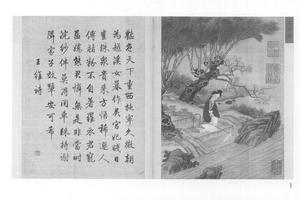 艷色天下重西施寧久微朝
為越溪女暮作吳宮妃賤日
豈殊眾貴來方悟稀邀人
傅脂粉不自著羅衣君寵
益嬌態君憐無是非當時
浣紗伴莫得同車歸持謝
鄰家子效顰安可希
王維詩
1